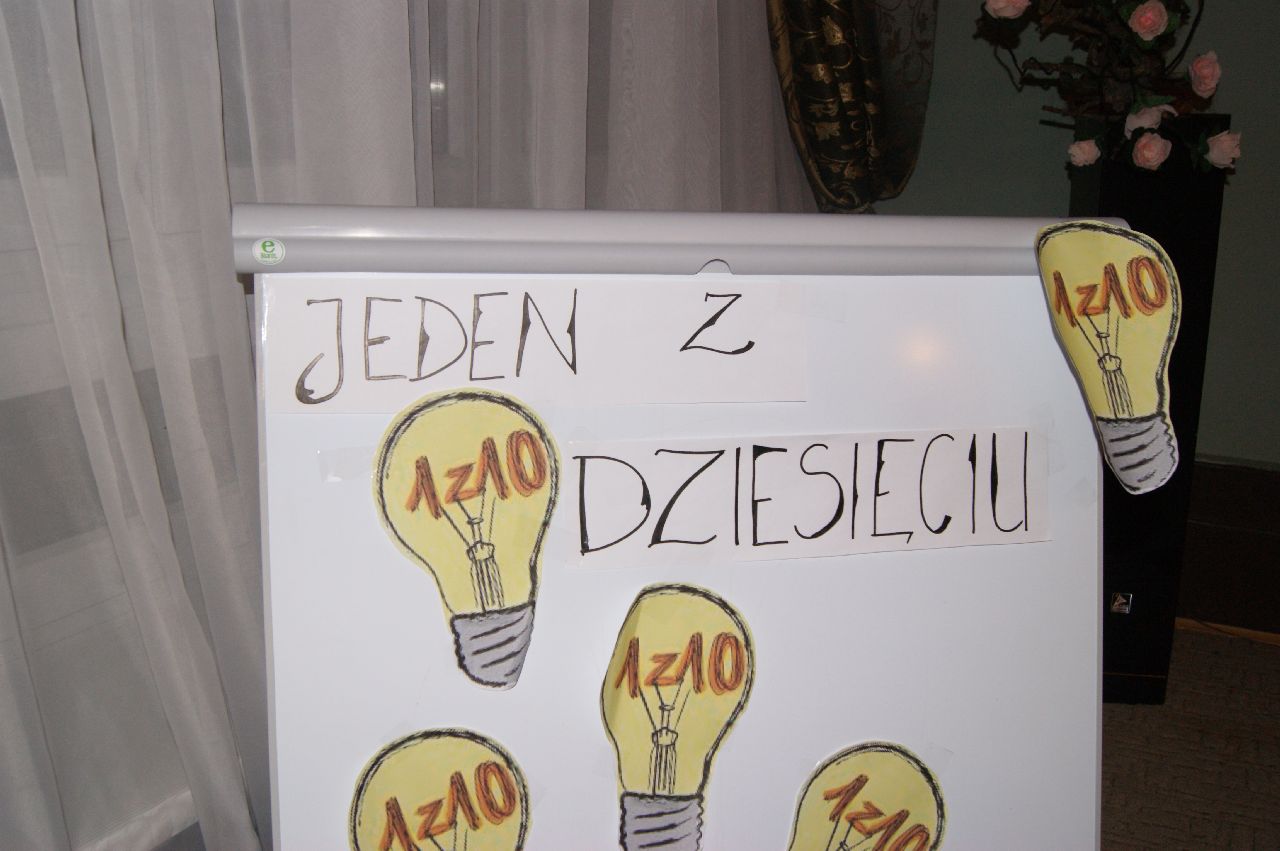 JEDEN Z
1z10
1z10
DZIESIĘCIU
1z10
1z10
1z10